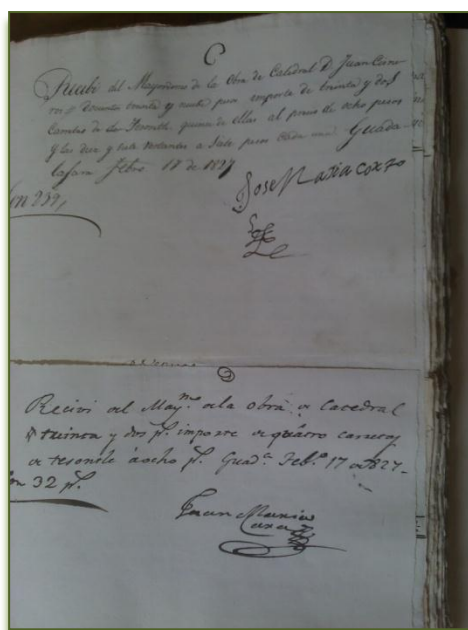 Recibí del Mayordomo de la Obra de Catedral D. Juan
docientos treinta y nuebe pesos importe de treinta y dos
Carretas de Tesontle, quince de ellas al precio de ocho pesos
y las diez y siete restantes a siete pesos cada una Guada-
laxara Febro 17 de 1827
Jose Maria corzo
Son 239,
Recivi del Mayᵐᵒ. de la obra de Catedral
treinta y dos pˢ. importe de quatro carretas
de tesontle á ocho pˢ. Guadᵃ. Febᵒ. 17 de 827-
Son 32 pˢ.
Juan Maria